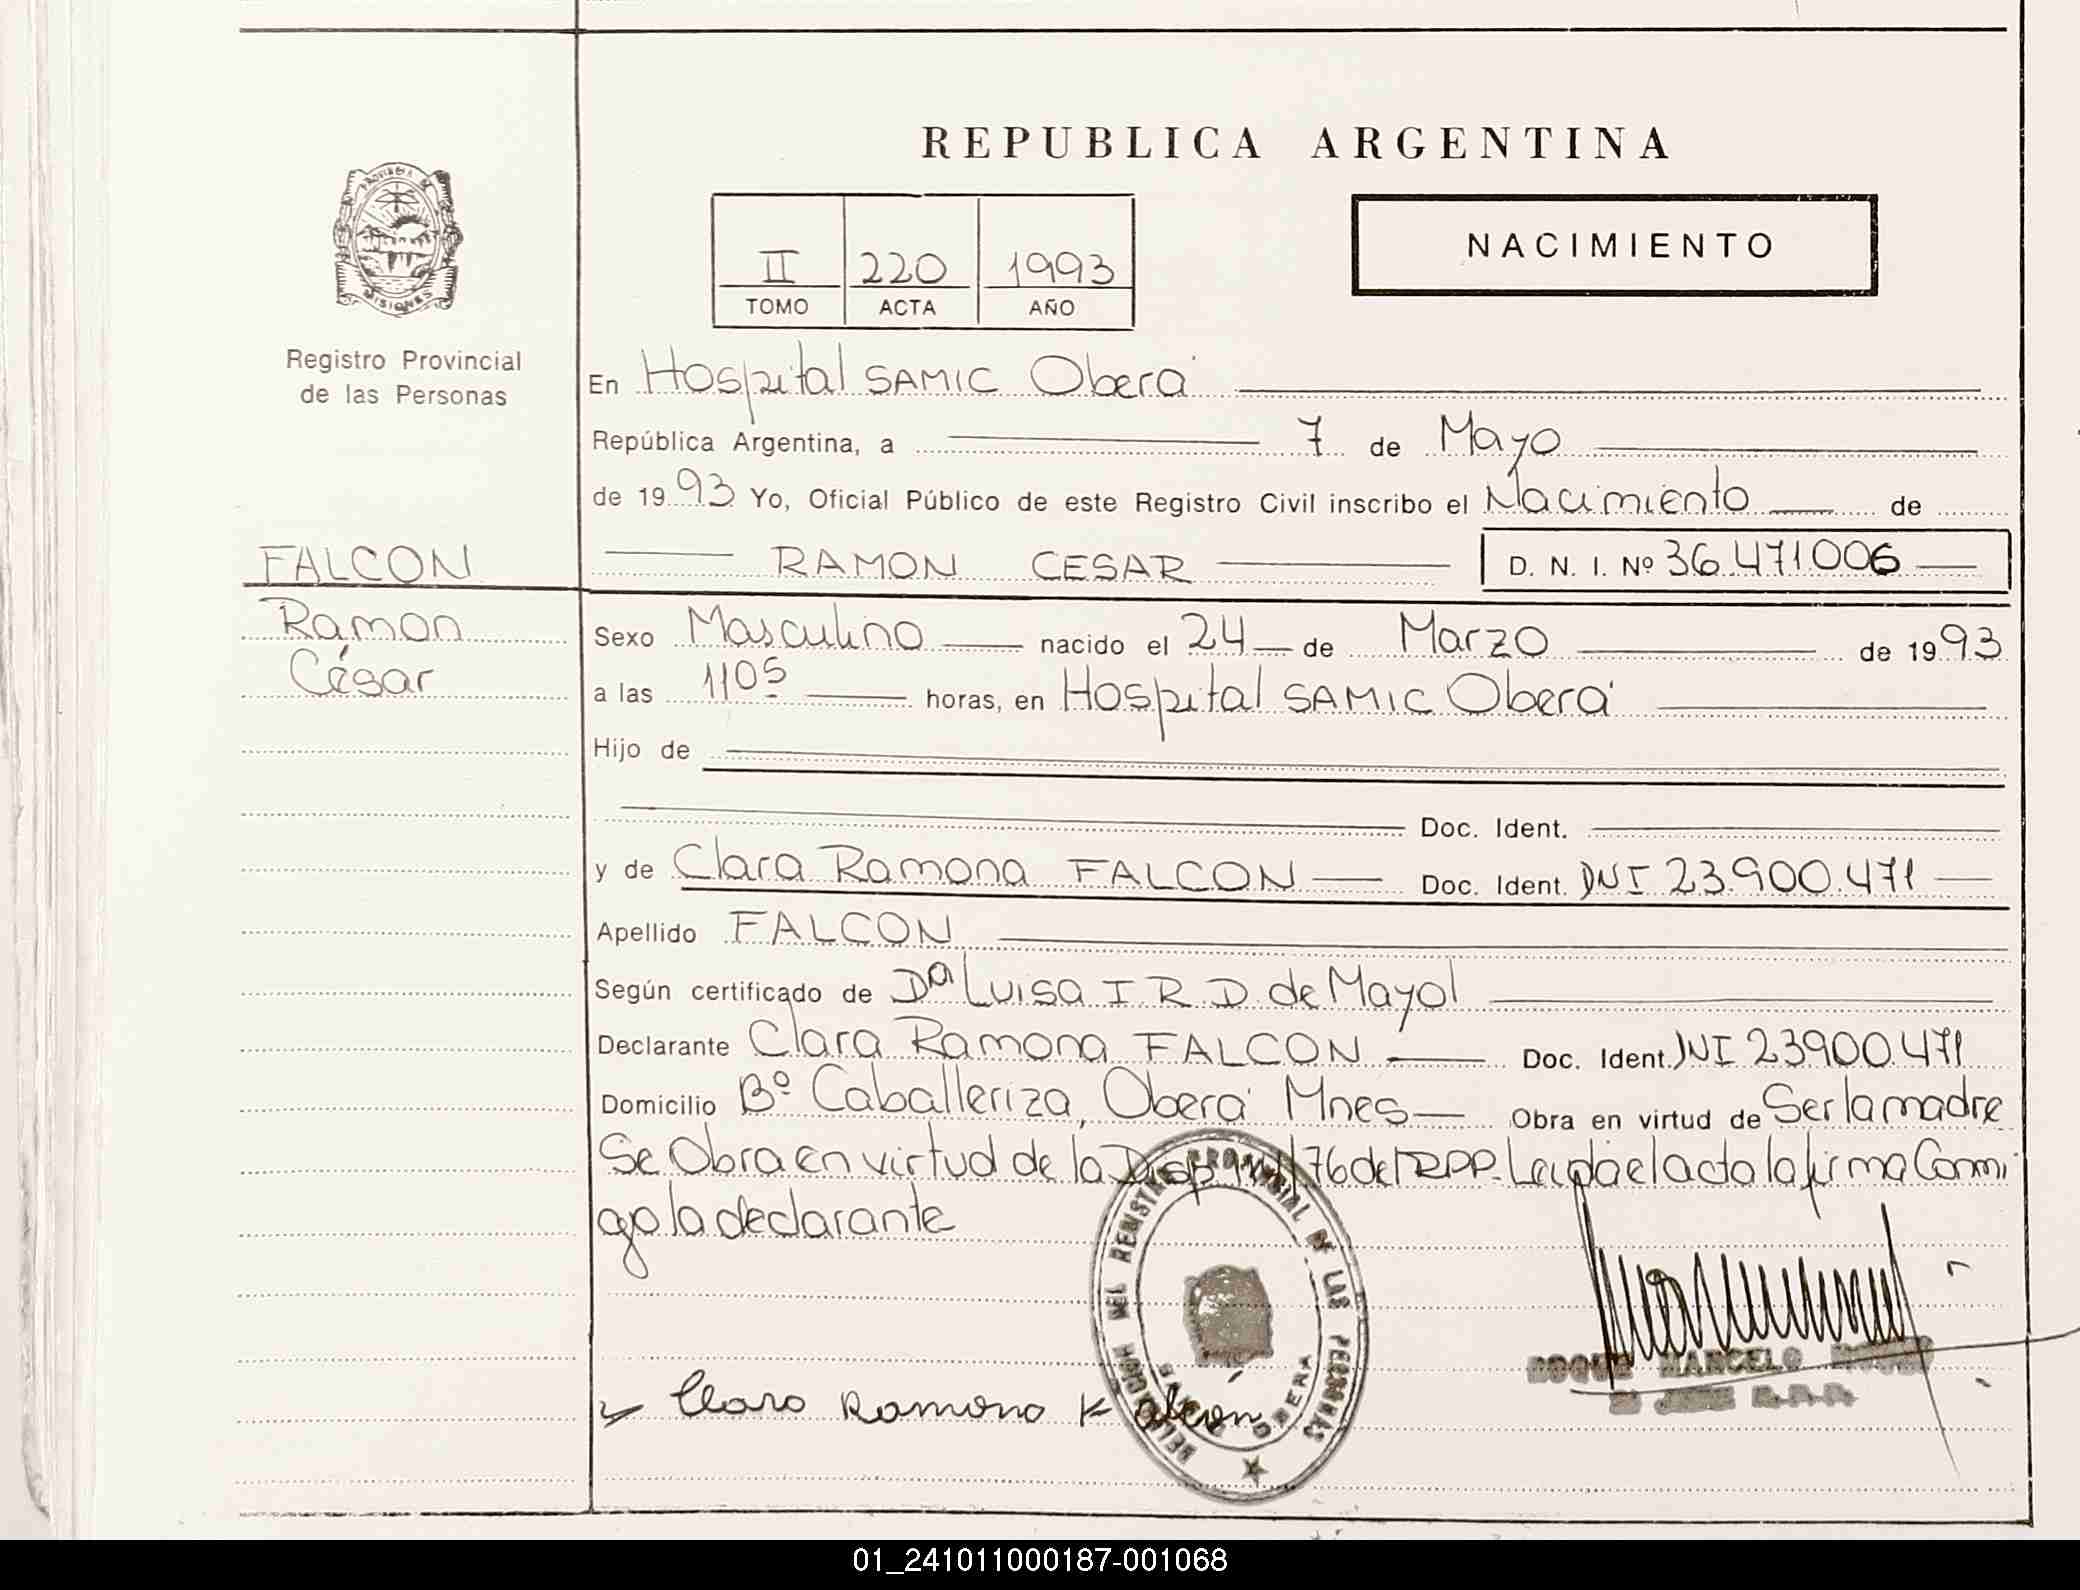 REPUBLICA ARGENTINA
PROVINCIA DE
MISIONES
Registro Provincial
de las Personas
II 220 1993
TOMO ACTA AÑO
NACIMIENTO
En Hospital SAMIC Oberá
República Argentina, a 7 de Mayo
de 1993 Yo, Oficial Público de este Registro Civil inscribo el Nacimiento de
FALCON RAMON CESAR D. N. I. Nº 36.471006
Ramon Sexo Masculino nacido el 24 de Marzo de 1993
César a las 1105 horas, en Hospital SAMIC Oberá
Hijo de
Doc. Ident.
y de Clara Ramona FALCON Doc. Ident. DNI 23.900.471
Apellido FALCON
Según certificado de Dª Luisa I R D de Mayol
Declarante Clara Ramona FALCON Doc. Ident. DNI 23900.471
Domicilio Bº Caballeriza, Oberá Mnes Obra en virtud de Ser la madre
Se Obra en virtud de la Disp 76 del RPP. Leida el acta la firma Conmi
go la declarante
DEL REGISTRO PROVINCIAL DE LAS PERSONAS
OBERA
MARCELO
Clara Ramona Falcón
01_241011000187-001068